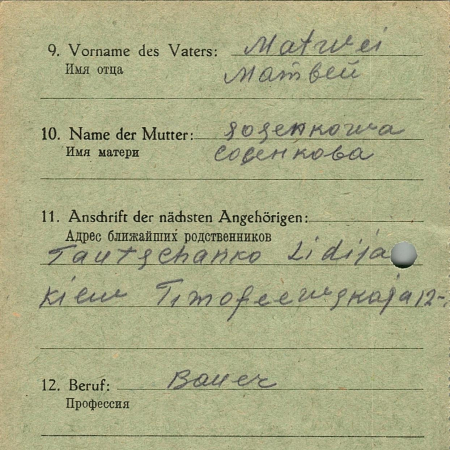 9. Vorname des Vaters: Matwei
Имя отца Матвей
10. Name der Mutter: Sosenkowa
Имя матери Сосенкова
11. Anschrift der nächsten Angehörigen:
Адрес ближайших родственников
Lidija
Kiew Timofeewskaja 12-
12. Beruf: Bauer
Профессия